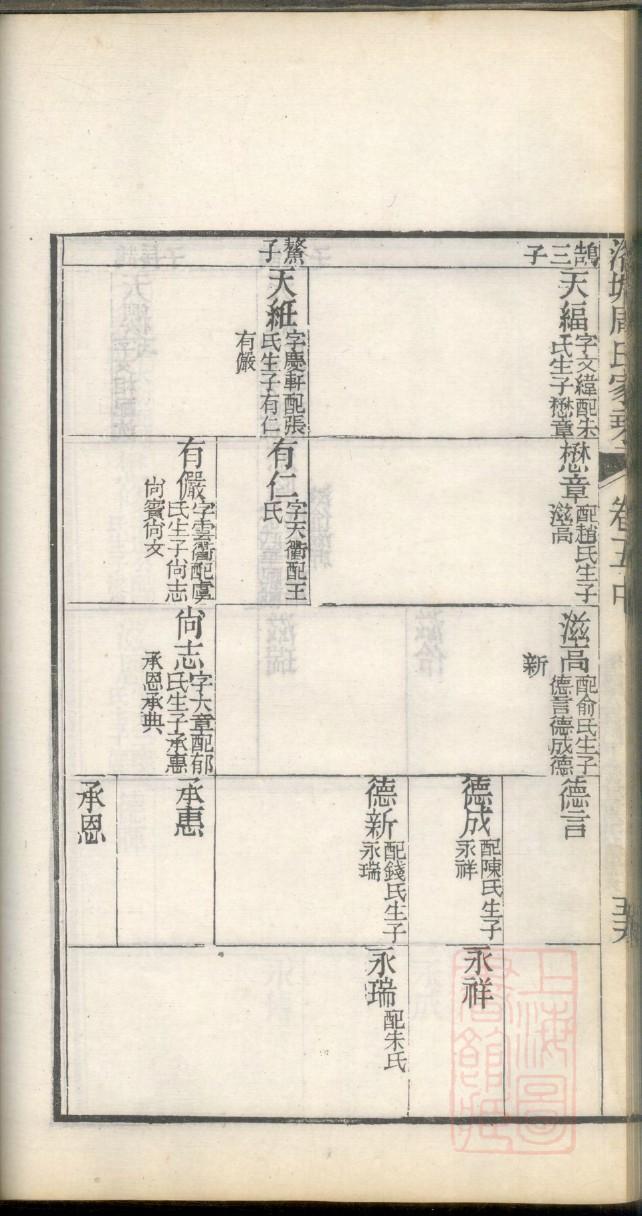 周氏家乘
卷五中
鵠三子
天緼
字文緯配朱
氏生子懋章
鰲子
天紙
字慶軒配張
氏生子有仁
有儼
懋章
配趙氏生子
滋高
有仁
字天衢配王
氏
有儼
字雲衢配虞
氏生子尙志
尙賓尙文
滋高
配俞氏生子
德言德成德
新
尙志
字大章配郁
氏生子承惠
承恩承典
德言
德成
配陳氏生子
永祥
德新
配錢氏生子
永瑞
承惠
承恩
永祥
永瑞
配朱氏
上海圖
書館藏